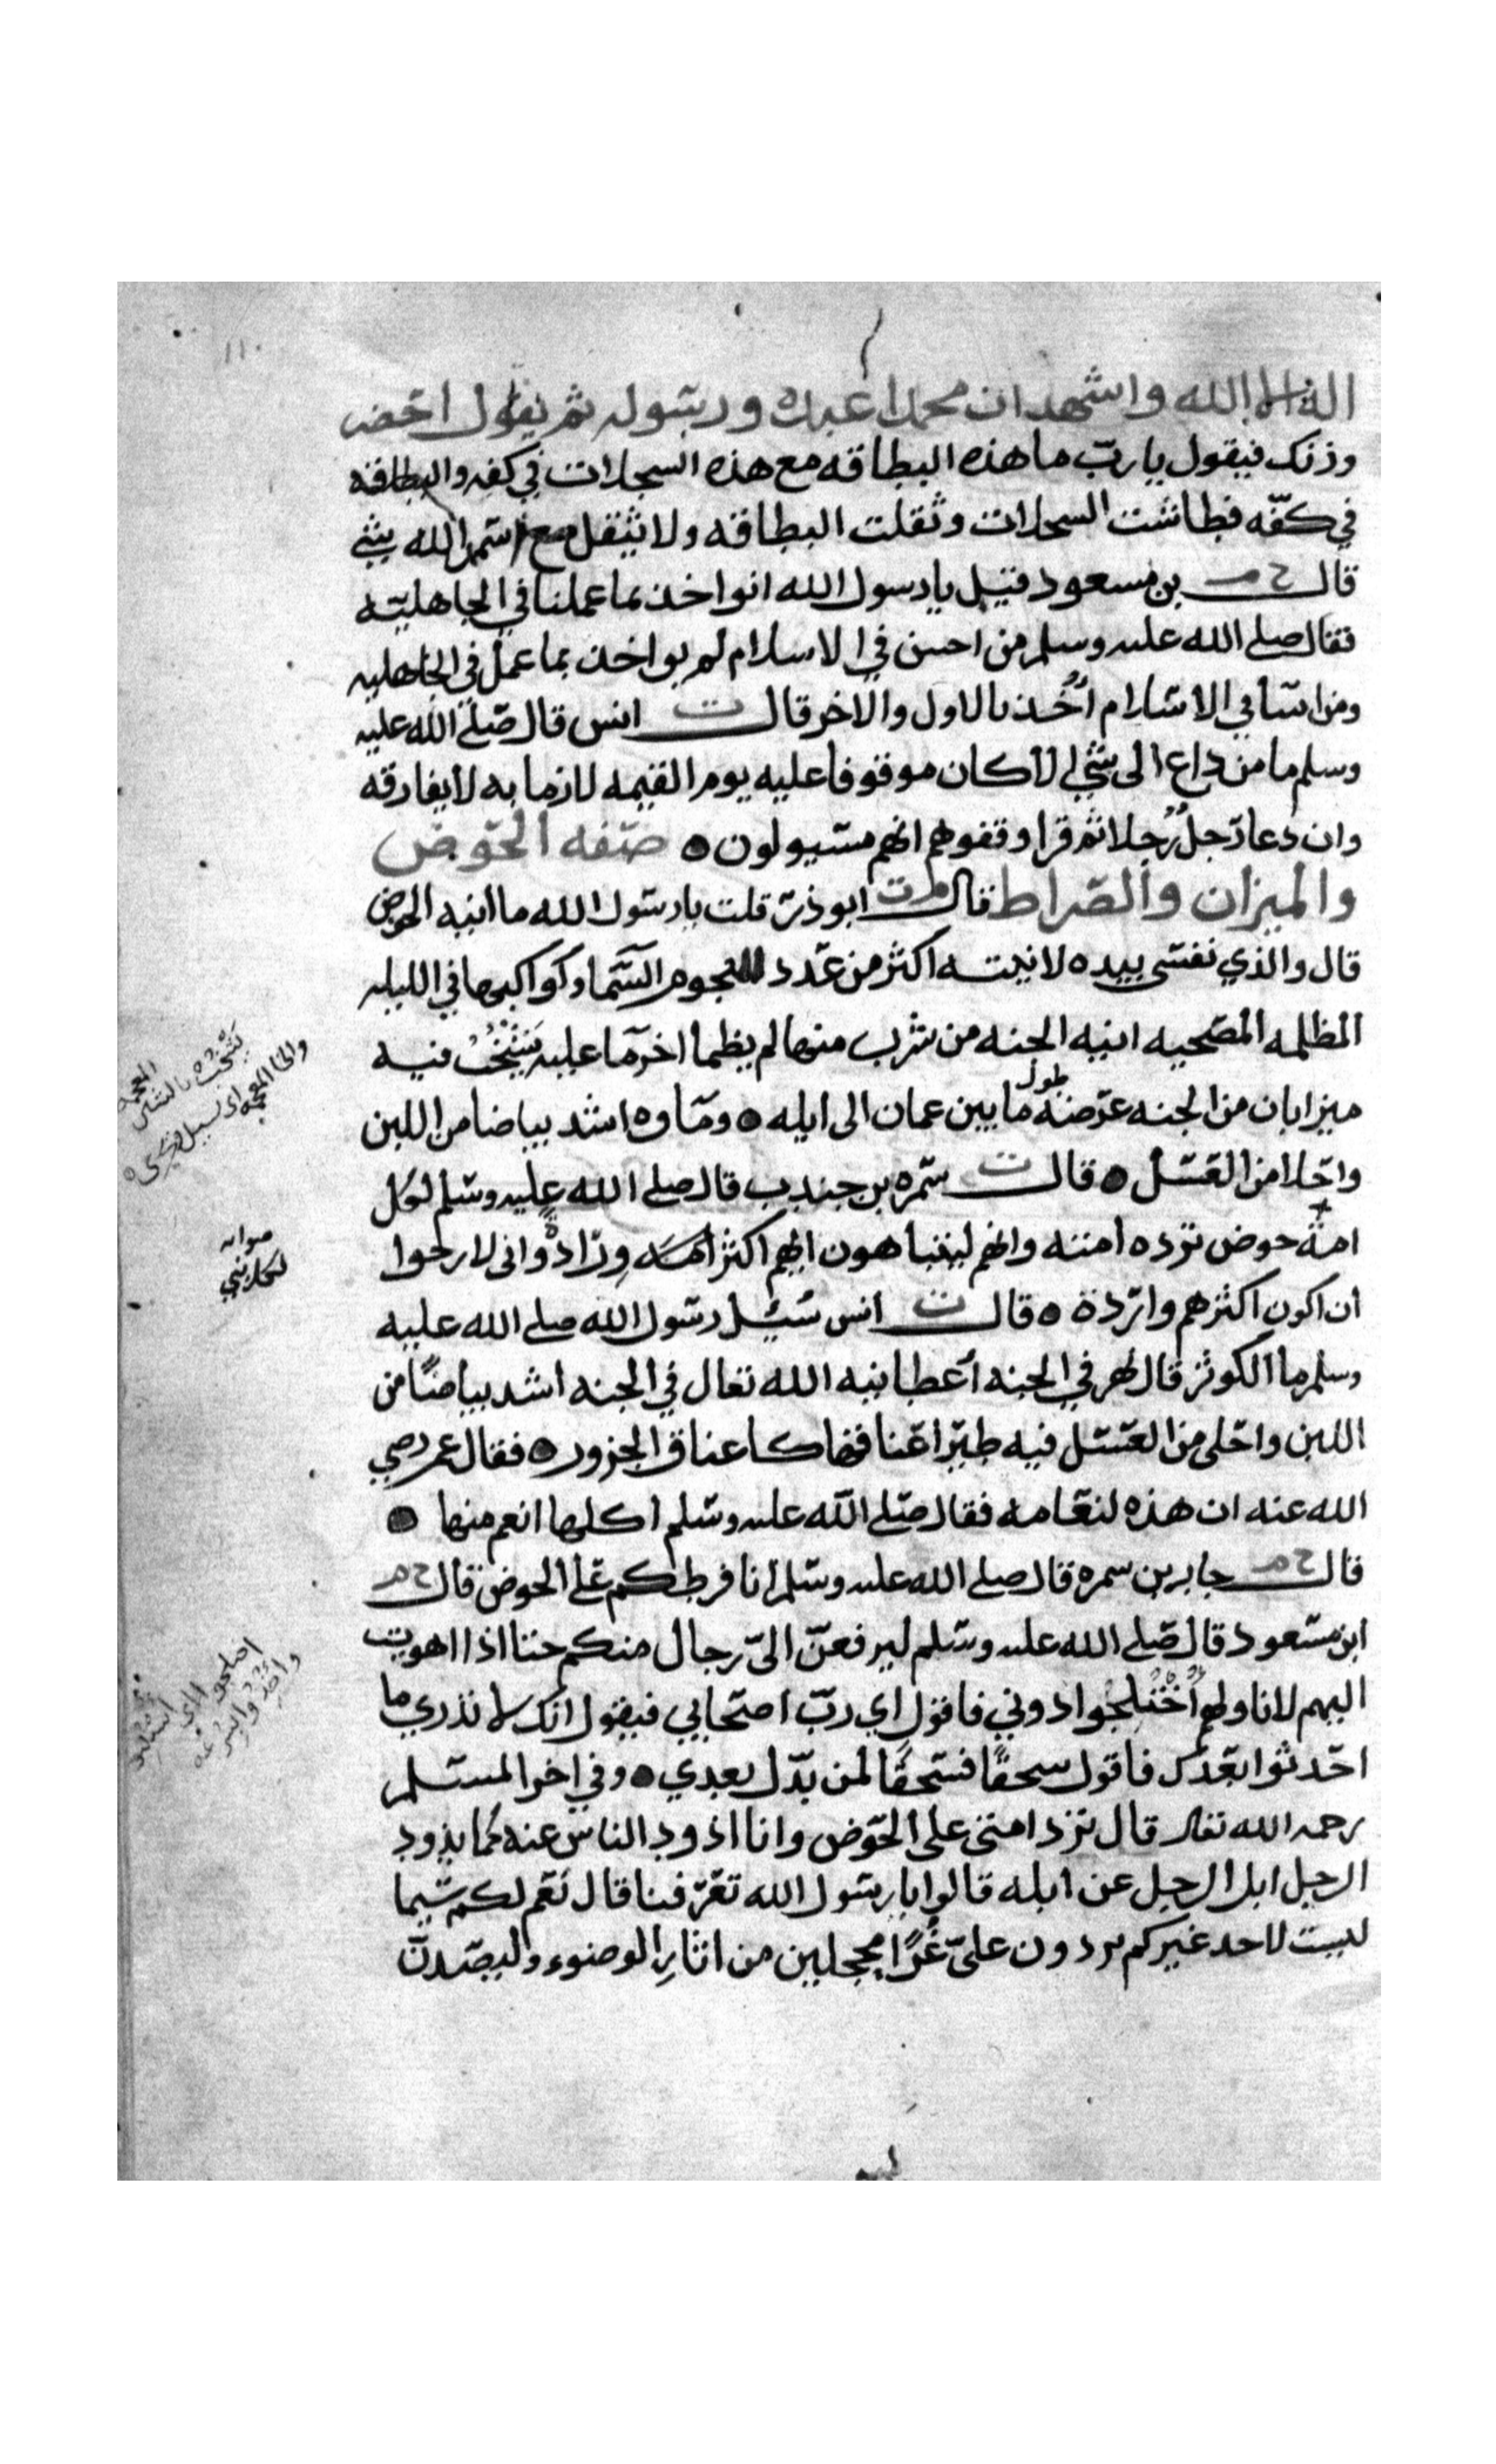 ١١٠
اله الا الله واشهد ان محمدا عبده ورسوله ثم يقول احضر
وزنك فيقول يا رب ما هذه البطاقه مع هذه السجلات في كفه والبطاقه
في كفّه فطاشت السجلات وثقلت البطاقه ولا يثقل مع اسم الله شي
قال خ م بن مسعود قيل يا رسول الله انواخذ بما عملنا في الجاهليه
فقال صلى الله عليه وسلم من احسن في الاسلام لم يواخذ بما عمل في الجاهليه
ومن اسا في الاسلام أُخذ بالاول والاخر قال ت انس قال صلى الله عليه
وسلم ما من داع الى شي الا كان موقوفا عليه يوم القيمه لازما به لا يفارقه
وان دعا رجلٌ رجلا ثم قرا وقفوهم انهم مسيولون ه صفه الحوض
والميزان والصراط قال م ت ابو ذر قلت يا رسول الله ما انيه الحوض
قال والذي نفسي بيده لانيته اكثر من عدد نجوم السما وكواكبها في الليله
المظلمه المصحيه انيه الجنه من شرب منها لم يظما اخر ما عليه يَشْخُبُ فيه
ميزابان من الجنه عرضه طول ما بين عمان الى ايله ه وماوه اشد بياضا من اللبن
واحلا من العسل ه قال ت سمره بن جندب قال صلى الله عليه وسلم لكل
امة حوض ترده امته وانهم ليتباهون ايهم اكثر وِرّادةً واني لارجوا
ان اكون اكثرهم واردة ه قال ت انس سُئِل رسول الله صلى الله عليه
وسلم ما الكوثر قال نهر في الجنه أعطانيه الله تعالى في الجنه اشد بياضًا من
اللبن واحلى من العسل فيه طيرا عناقها كاعناق الجزور ه فقال عمر رضي
الله عنه ان هذه لنعامه فقال صلى الله عليه وسلم اكلها انعم منها ه
قال خ م جابر بن سمره قال صلى الله عليه وسلم انا فرطكم على الحوض قال خ م
ابن مسعود قال صلى الله عليه وسلم ليرفعنّ اليّ رجال منكم حتا اذا اهويت
اليهم لاناولهم اُخْتُلِجُوا دوني فاقول اي ربّ اصحابي فيقول انك لا تدري ما
احدثوا بعدك فاقول سحقًا فسحقًا لمن بدّل بعدي ه وفي اخر المسلم
رحمه الله تعالى قال ترد امتي على الحوض وانا اذود الناس عنه كما يذود
الرجل ابل الرجل عن ابله قالوا يا رسول الله تعرفنا قال نعم لكم سيما
ليست لاحد غيركم تردون عليّ غُرًّا محجلين من اثارِ الوضوء وليصدنّ
يَشْخُب بالشين المعجمه
والخا المعجمه اي يسيل ويجري ه
صوابه
لكل نبي